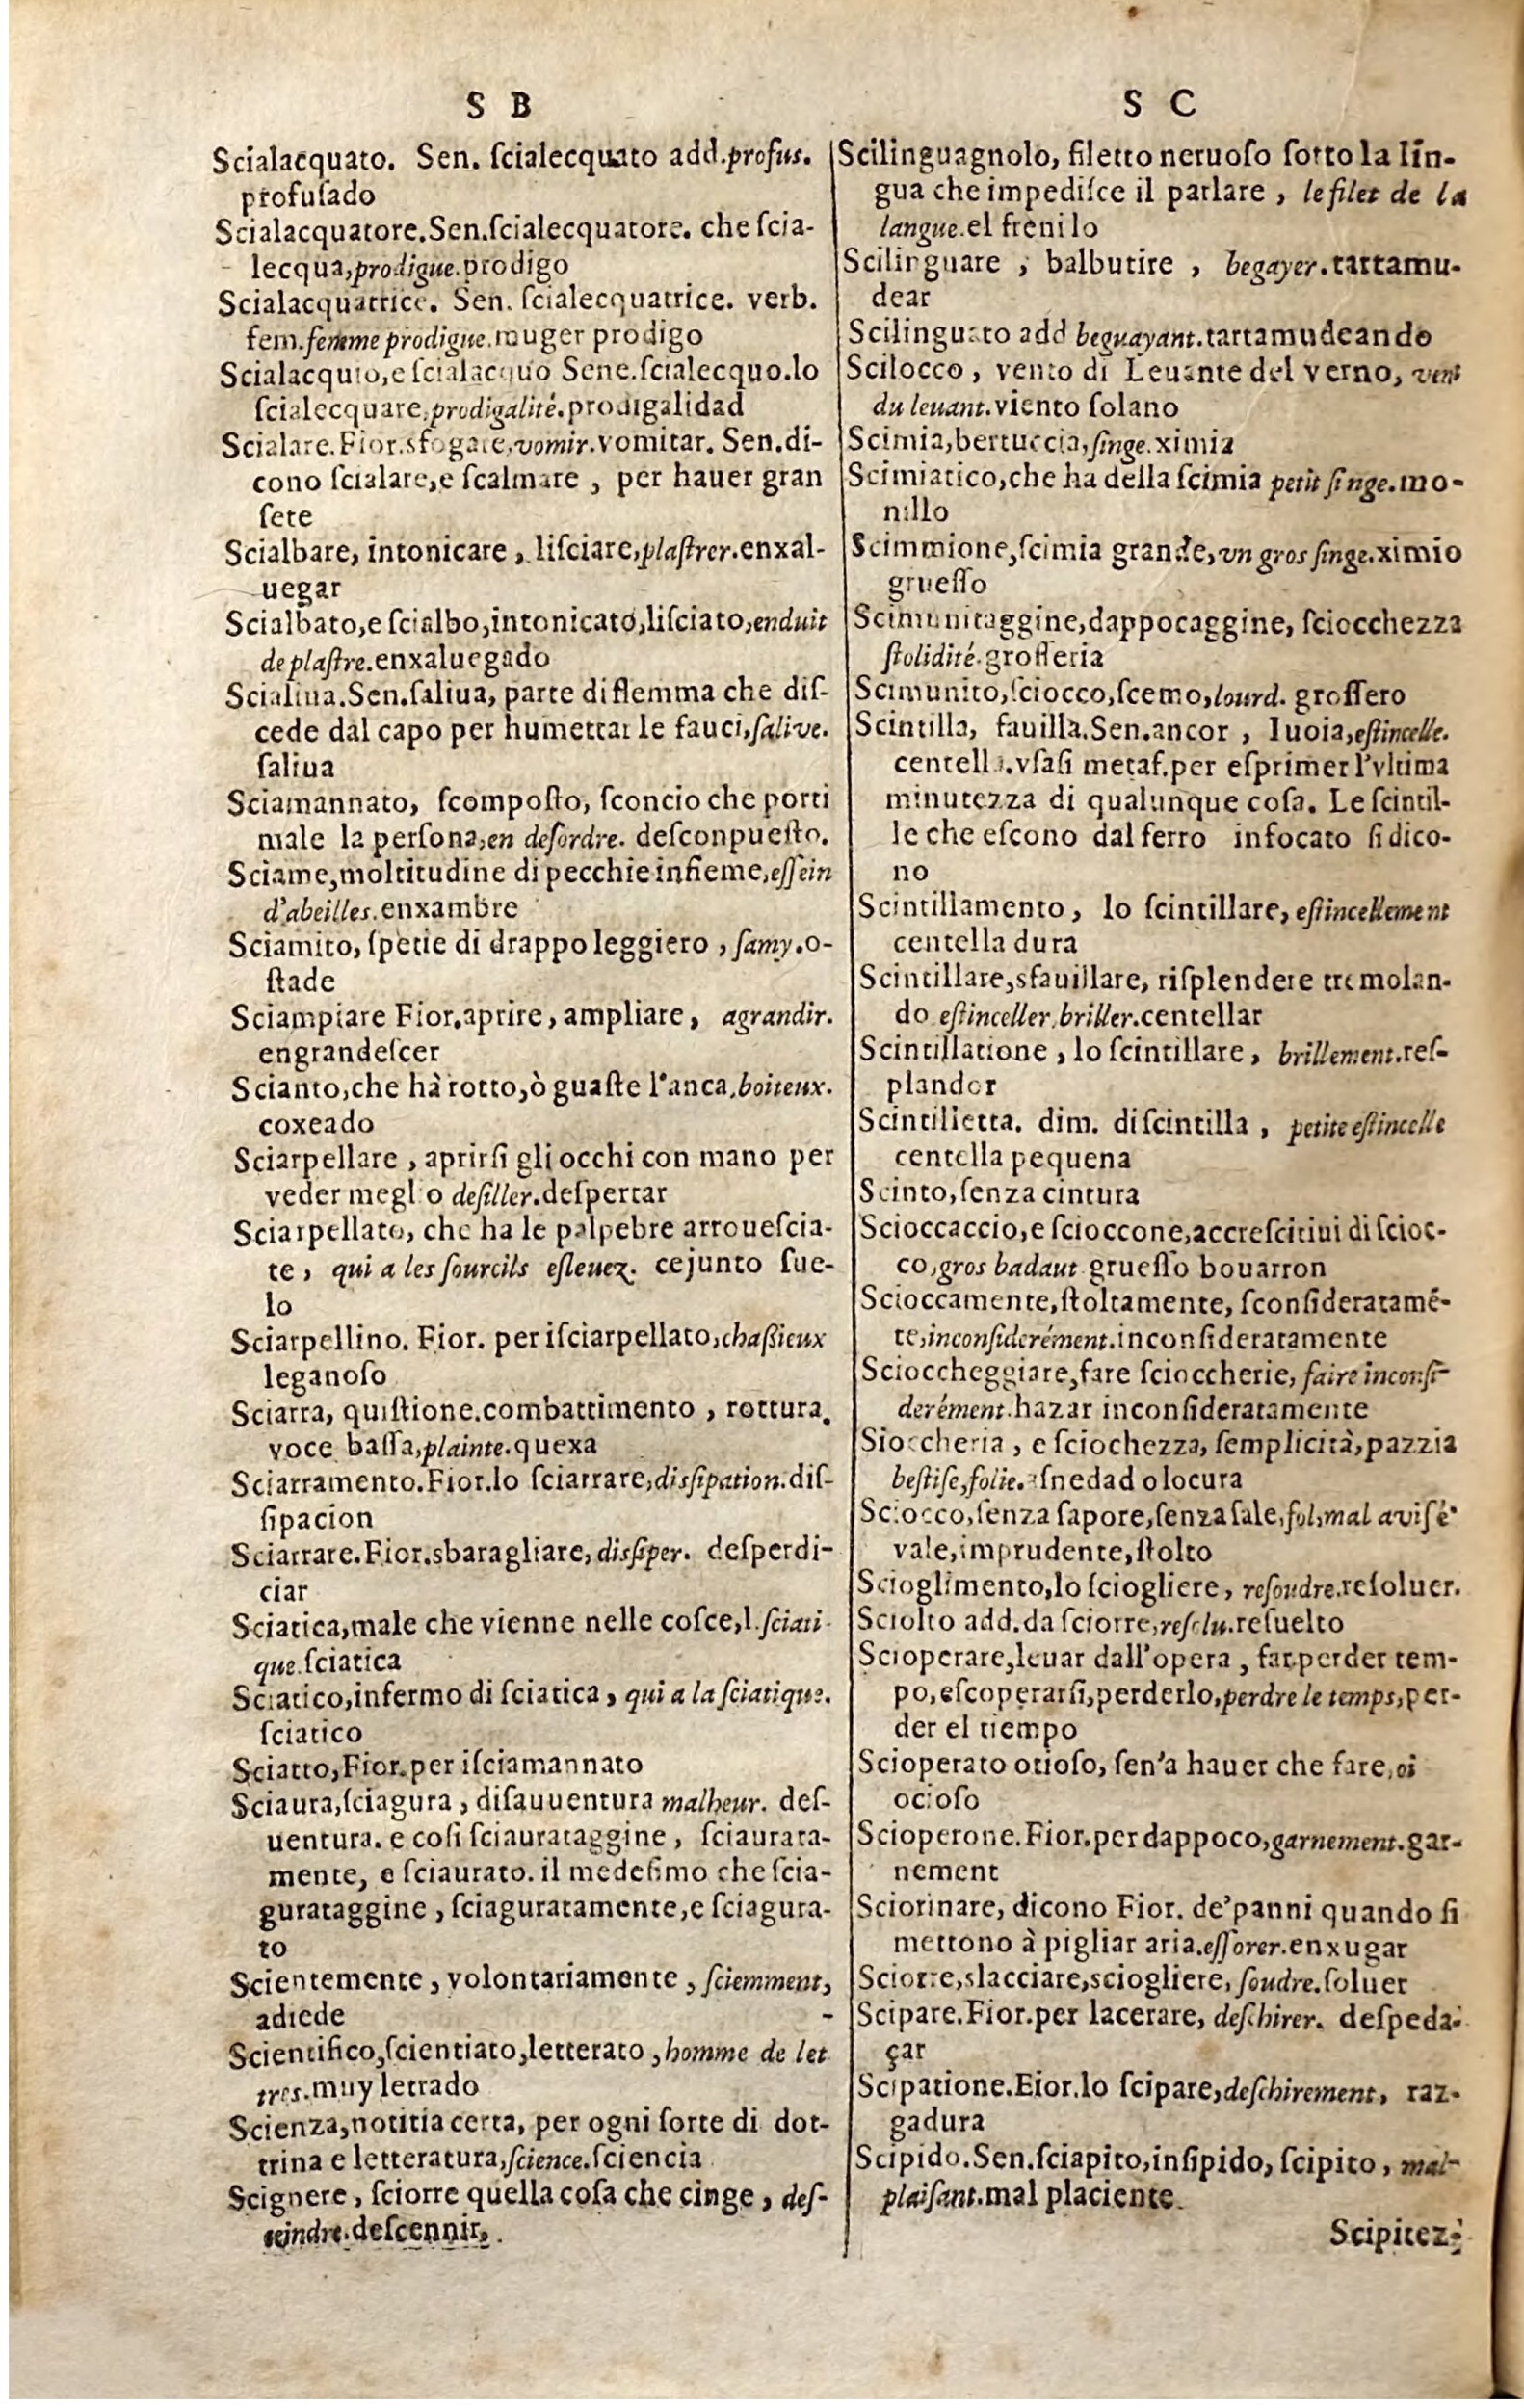 S B
Scialacquato. Sen. ſcialecquato add.profus.
profuſado
Scialacquatore.Sen.ſcialecquatore. che ſcia-
lecqua,prodigue.prodigo
Scialacquatrice. Sen. ſcialecquatrice. verb.
fem.femme prodigue.muger prodigo
Scialacquio,e ſcialacquo Sene.ſcialecquo.lo
ſcialecquare,prodigalité.prodigalidad
Scialare.Fior.sfogare,vomir.vomitar. Sen.di-
cono ſcialare,e ſcalmare , per hauer gran
ſete
Scialbare, intonicare , liſciare,plaſtrer.enxal-
uegar
Scialbato,e ſcialbo,intonicato,liſciato,enduit
de plaſtre.enxaluegado
Scialiua.Sen.ſaliua, parte di flemma che diſ-
cede dal capo per humettar le fauci,ſalive.
ſaliua
Sciamannato, ſcompoſto, ſconcio che porti
male la perſona,en deſordre. deſconpueſto.
Sciame,moltitudine di pecchie inſieme,eſſein
d'abeilles.enxambre
Sciamito, ſpetie di drappo leggiero , ſamy.o-
ſtade
Sciampiare Fior.aprire, ampliare, agrandir.
engrandeſcer
Scianto,che hà rotto,ò guaſte l'anca,boiteux.
coxeado
Sciarpellare , aprirſi gli occhi con mano per
veder meglio deſiller.deſpertar
Sciarpellato, che ha le palpebre arroueſcia-
te , qui a les ſourcils eſleuez. cejunto ſue-
lo
Sciarpellino. Fior. per iſciarpellato,chaßieux
leganoſo
Sciarra, quiſtione.combattimento , rottura.
voce baſſa,plainte.quexa
Sciarramento.Fior.lo ſciarrare,diſſipation.diſ-
ſipacion
Sciarrare.Fior.sbaragliare,diſſiper. deſperdi-
ciar
Sciatica,male che vienne nelle coſce,l.ſciati-
que.ſciatica
Sciatico,infermo di ſciatica , qui a la ſciatique.
ſciatico
Sciatto,Fior.per iſciamannato
Sciaura,ſciagura , diſauuentura malheur. deſ-
uentura. e coſi ſciaurataggine , ſciaurata-
mente, e ſciaurato. il medeſimo che ſcia-
gurataggine , ſciaguratamente,e ſciagura-
to
Scientemente , volontariamente , ſciemment,
adrede
Scientifico,ſcientiato,letterato ,homme de let
tres.muy letrado
Scienza,notitia certa, per ogni ſorte di dot-
trina e letteratura,ſcience.ſciencia
Scignere , ſciorre quella coſa che cinge , deſ-
ceindre.deſcennir.
S C
Scilinguagnolo, filetto neruoſo ſotto la lin-
gua che impediſce il parlare , le filet de la
langue.el frenilo
Scilinguare , balbutire , begayer.tartamu-
dear
Scilinguato add beguayant.tartamudeando
Scilocco , vento di Leuante del verno, vent
du leuant.viento ſolano
Scimia,bertuccia,ſinge.ximia
Scimiatico,che ha della ſcimia petit ſinge.mo-
nillo
Scimmione,ſcimia grande,vn gros ſinge.ximio
grueſſo
Scimunitaggine,dappocaggine, ſciocchezza
ſtolidité.groſſeria
Scimunito,ſciocco,ſcemo,lourd. groſſero
Scintilla, fauilla.Sen.ancor , luoia,eſtincelle.
centella.vſaſi metaf.per eſprimer l'vltima
minutezza di qualunque coſa. Le ſcintil-
le che eſcono dal ferro infocato ſi dico-
no
Scintillamento, lo ſcintillare, eſtincellement
centella dura
Scintillare,sfauillare, riſplendere tremolan-
do eſtinceller,briller.centellar
Scintillatione , lo ſcintillare , brillement.reſ-
plandor
Scintilletta. dim. di ſcintilla , petite eſtincelle
centella pequena
Scinto,ſenza cintura
Scioccaccio,e ſcioccone,accreſcitiui di ſcioc-
co,gros badaut grueſſo bouarron
Scioccamente,ſtoltamente, ſconſideratamẽ-
te,inconſiderément.inconſideratamente
Scioccheggiare,fare ſcioccherie, faire inconſi-
derément.hazar inconſideratamente
Sioccheria , e ſciochezza, ſemplicità,pazzia
beſtiſe,folie.aſnedad o locura
Sciocco,ſenza ſapore,ſenza ſale,fol,mal aviſé
vale,imprudente,ſtolto
Scioglimento,lo ſciogliere, reſoudre.reſoluer.
Sciolto add.da ſciorre,reſolu.reſuelto
Scioperare,leuar dall'opera , far perder tem-
po,eſcoperarſi,perderlo,perdre le temps,per-
der el tiempo
Scioperato otioſo, ſen'a hauer che fare,oi
ocioſo
Scioperone.Fior.per dappoco,garnement.gar-
nement
Sciorinare, dicono Fior. de'panni quando ſi
mettono à pigliar aria.eſſorer.enxugar
Sciorre,slacciare,sciogliere, ſoudre.ſoluer
Scipare.Fior.per lacerare, deſchirer. deſpeda-
çar
Scipatione.Eior.lo ſcipare,deſchirement, raz-
gadura
Scipido.Sen.ſciapito,inſipido, ſcipito , mal-
plaiſant.mal placiente.
Scipitez-